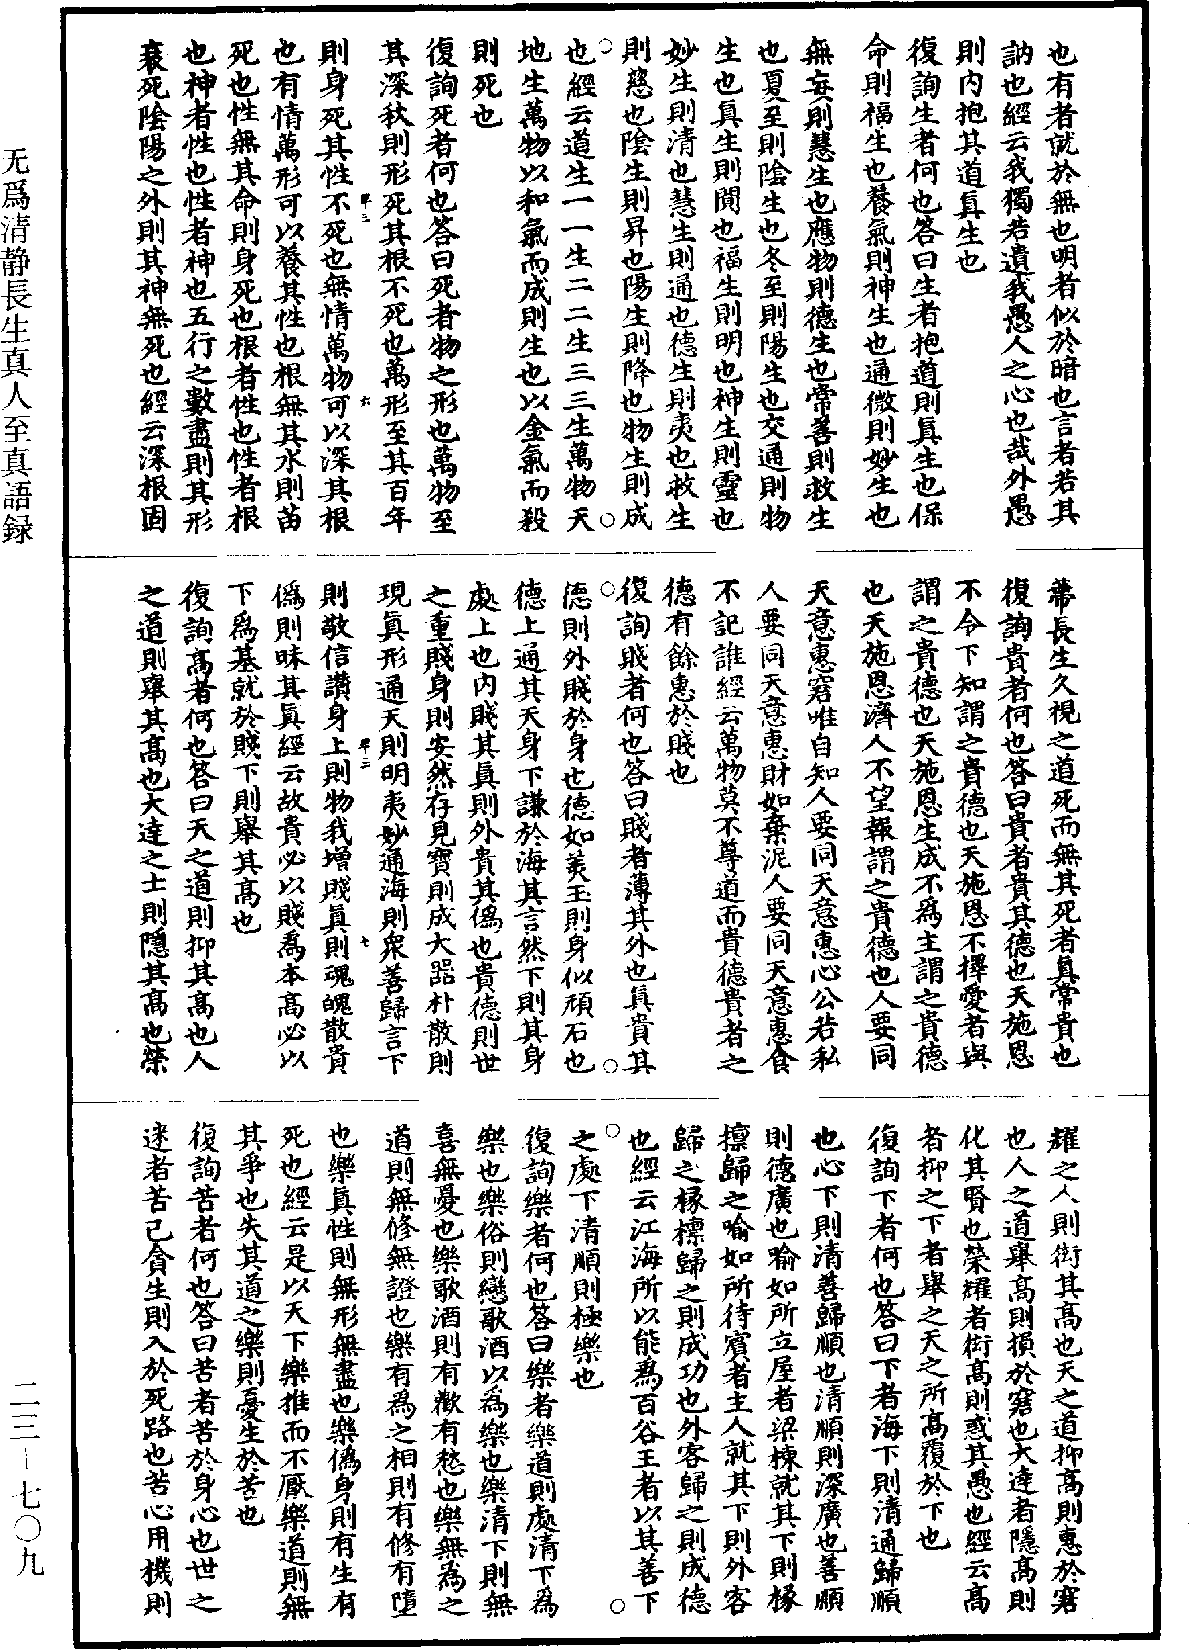 也有者就於無也明者似於暗也言者若其
訥也經云我獨若遺我愚人之心也哉外愚
則内抱其道真生也
復詢生者何也答曰生者抱道則真生也保
命則福生也養氣則神生也通微則妙生也
無妄則慧生也應物則德生也常善則救生
也夏至則陰生也冬至則陽生也交通則物
生也真生則閴也福生則明也神生則靈也
妙生則清也慧生則通也德生則夷也救生
則慈也陰生則昇也陽生則降也物生則成
也經云道生一一生二二生三三生萬物天
地生萬物以和氣而成則生也以金氣而殺
則死也
復詢死者何也答曰死者物之形也萬物至
其深秋則形死其根不死也萬形至其百年
則身死其性不死也無情萬物可以深其根
也有情萬形可以養其性也根無其水則苗
死也性無其命則身死也根者性也性者根
也神者性也性者神也五行之數盡則其形
衰死陰陽之外則其神無死也經云深根固
蔕長生久視之道死而無其死者真常貴也
復詢貴者何也答曰貴者貴其德也天施恩
不令下知謂之貴德也天施恩不擇愛者與
謂之貴德也天施恩生成不為主謂之貴德
也天施恩濟人不望報謂之貴德也人要同
天意惠窘唯自知人要同天意惠心公若私
人要同天意惠財如棄泥人要同天意惠食
不記誰經云萬物莫不尊道而貴德貴者之
德有餘惠於賤也
復詢賤者何也答曰賤者薄其外也真貴其
德則外賤於身也德如美玉則身似頑石也
德上通其天身下謙於海其言然下則其身
處上也内賤其真則外貴其偽也貴德則世
之重賤身則安然存見寶則成大器朴散則
現真形通天則明夷妙通海則衆善歸言下
則敬信讚身上則物我增賤真則魂魄散貴
偽則昧其真經云故貴必以賤為本高必以
下為基就於賤下則舉其高也
復詢高者何也答曰天之道則抑其高也人
之道則舉其高也大達之士則隱其高也榮
耀之人則衒其高也天之道抑高則惠於窘
也人之道舉高則損於窘也大達者隱高則
化其賢也榮耀者衒高則惑其愚也經云高
者抑之下者舉之天之所高覆於下也
復詢下者何也答曰下者海下則清通歸順
也心下則清善歸順也清順則深廣也善順
則德廣也喻如所立屋者梁棟就其下則椽
檁歸之喻如所待賓者主人就其下則外客
歸之椽檁歸之則成功也外客歸之則成德
也經云江海所以能為百谷王者以其善下
之處下清順則極樂也
復詢樂者何也答曰樂者樂道則處清下為
樂也樂俗則戀歌酒以為樂也樂清下則無
喜無憂也樂歌酒則有歡有愁也樂無為之
道則無修無證也樂有為之相則有修有墮
也樂真性則無形無盡也樂偽身則有生有
死也經云是以天下樂推而不厭樂道則無
其爭也失其道之樂則憂生於苦也
復詢苦者何也答曰苦者苦於身心也世之
迷者苦己貪生則入於死路也苦心用機則
无爲清静長生真人至真語録
二三－七〇九